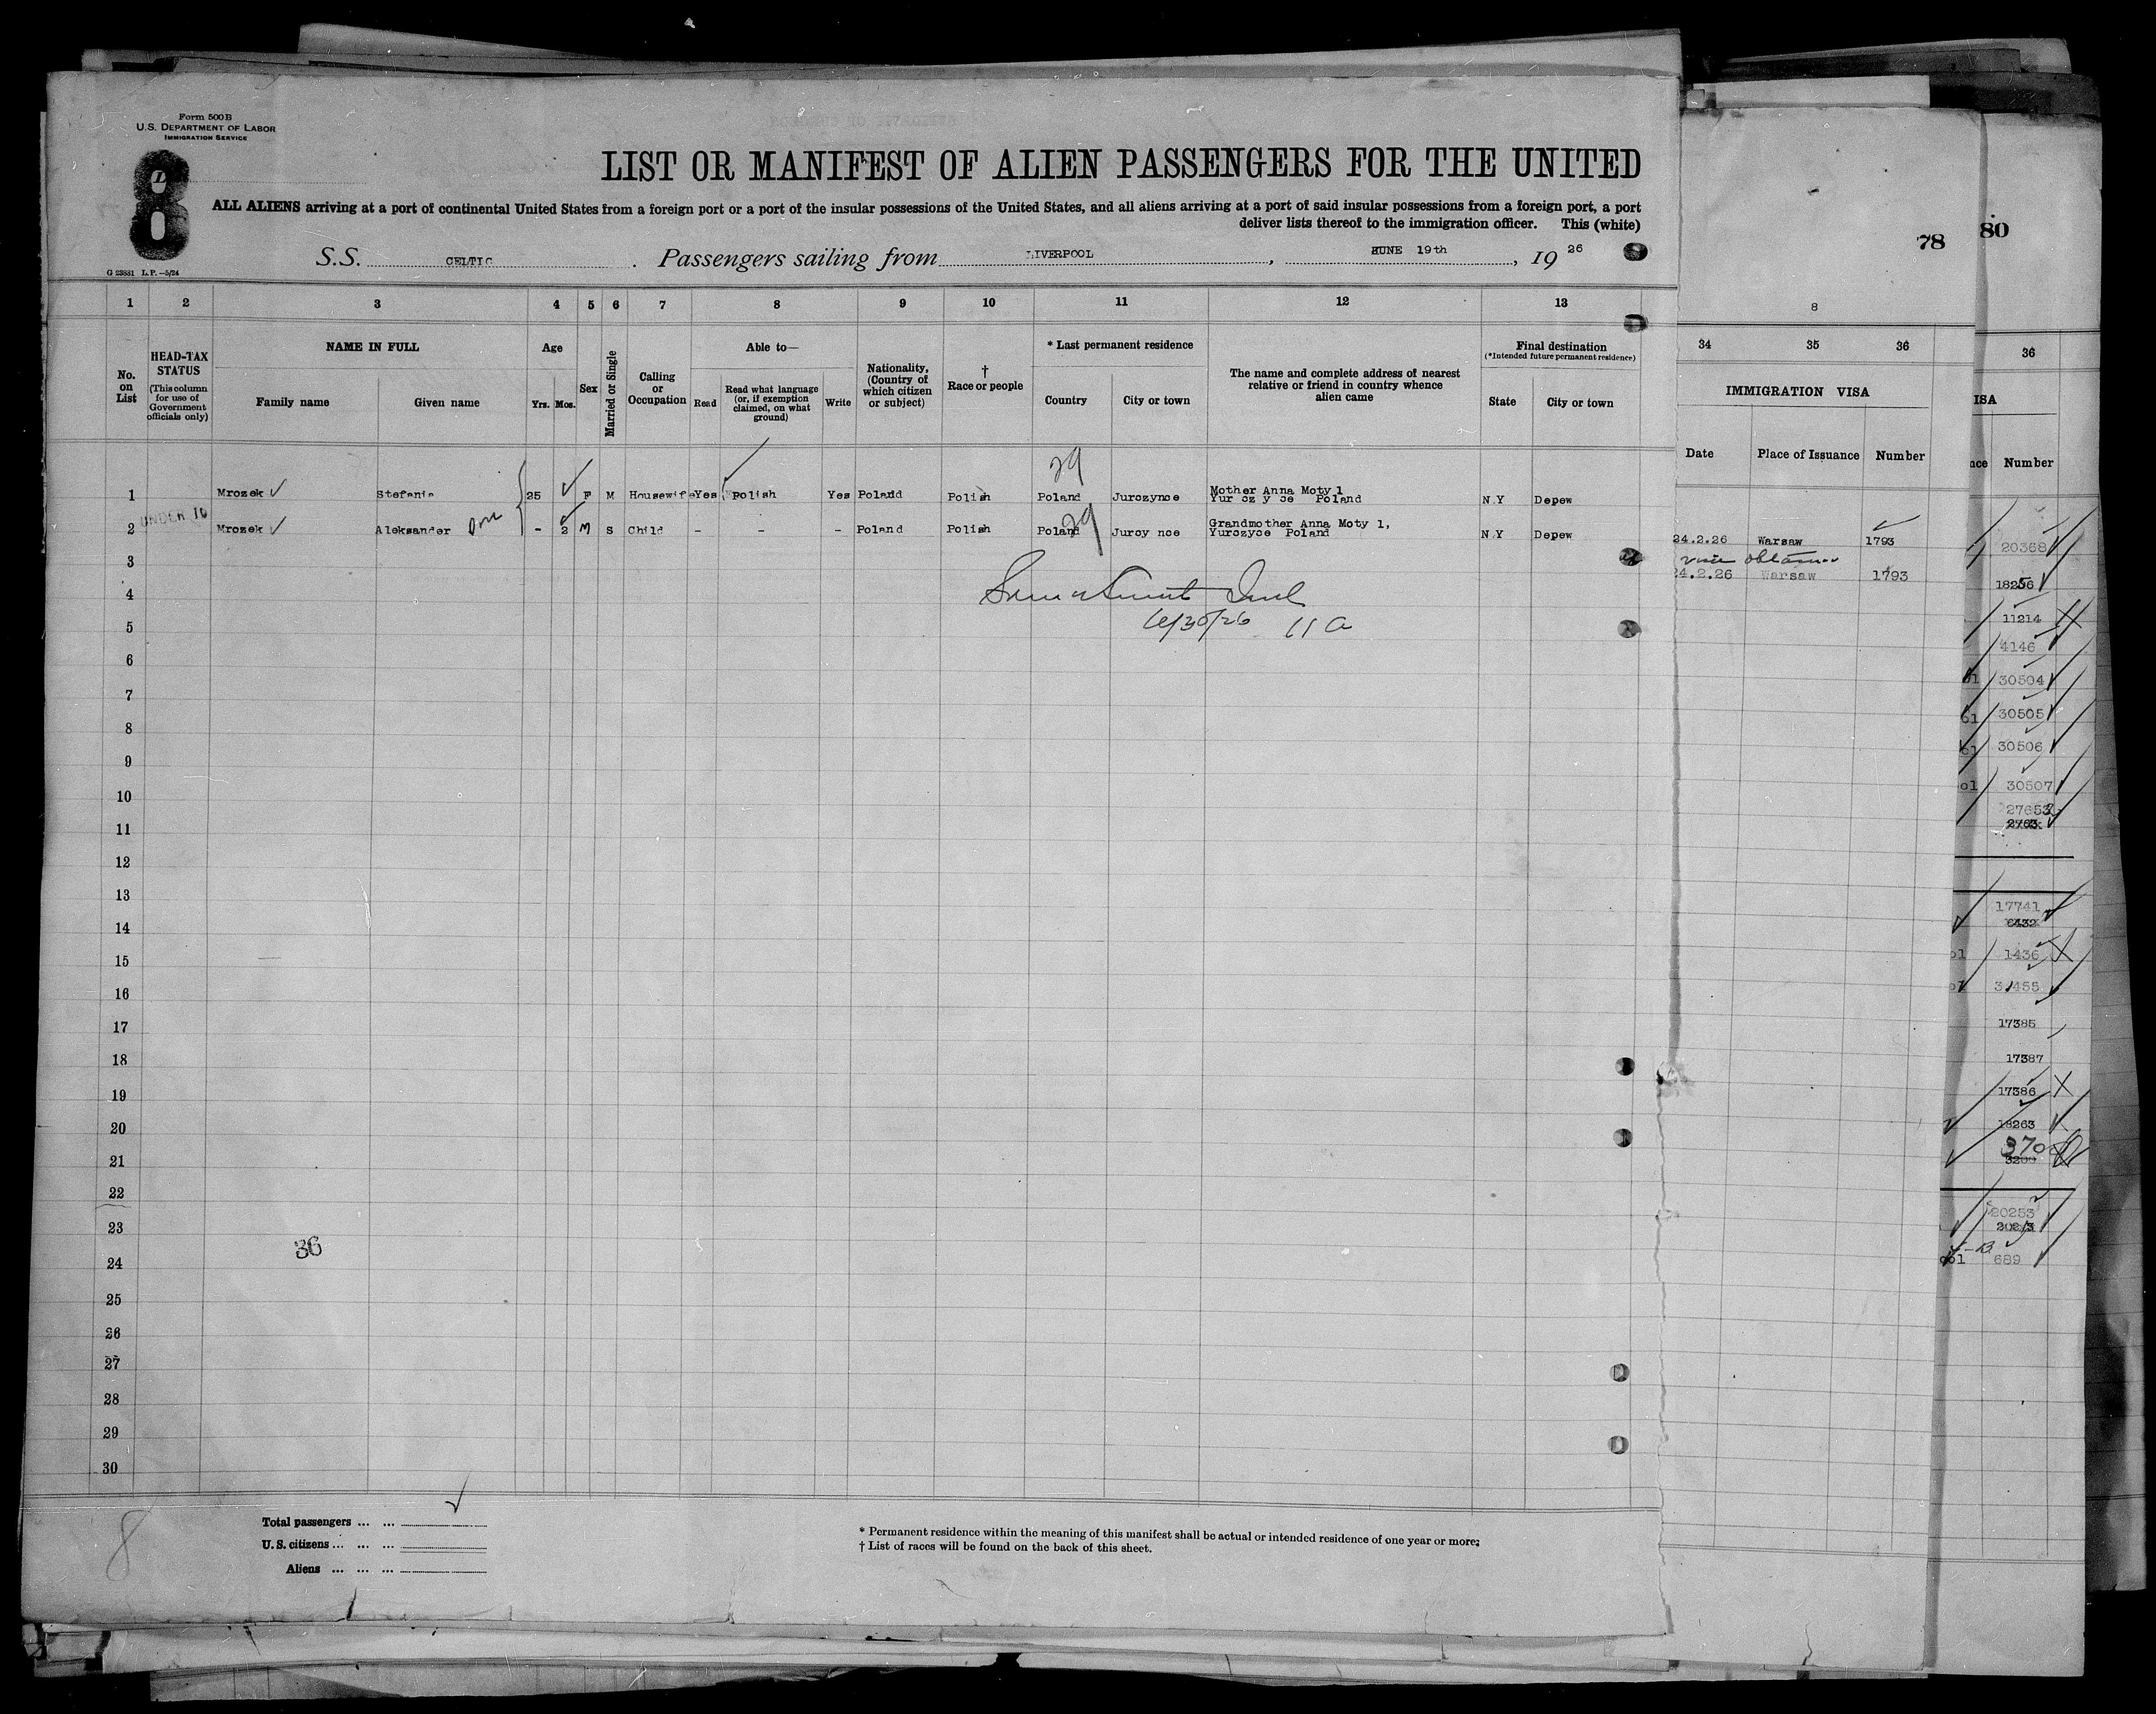 Form 500 B
U.S. DEPARTMENT OF LABOR
IMMIGRATION SERVICE
8
LIST OR MANIFEST OF ALIEN PASSENGERS FOR THE UNITED
ALL ALIENS arriving at a port of continental United States from a foreign port or a port of the insular possessions of the United States, and all aliens arriving at a port of said insular possessions from a foreign port, a port
deliver lists thereof to the immigration officer. This (white)
S.S. CELTIC. Passengers sailing from LIVERPOOL, JUNE 19th, 1926
G 23881 L.P.—5/24
78
80
8
1 2 3 4 5 6 7 8 9 10 11 12 13
34 35 36
36
No. on List
HEAD-TAX STATUS
(This column for use of Government officials only)
NAME IN FULL
Family name
Given name
Age
Yrs. Mos.
Sex
Married or Single
Calling or Occupation
Able to—
Read
Read what language (or, if exemption claimed, on what ground)
Write
Nationality, (Country of which citizen or subject)
† Race or people
* Last permanent residence
Country
City or town
The name and complete address of nearest relative or friend in country whence alien came
Final destination
(*Intended future permanent residence)
State
City or town
IMMIGRATION VISA
Date
Place of Issuance
Number
ISA
nce
Number
29
1 Mrozek Stefania 25 F M Housewife Yes Polish Yes Poland Polish Poland Jurczynce Mother Anna Moty l Yur cz y ce Poland N Y Depew
UNDER 16
2 Mrozek Aleksander - 2 M S Child - - - Poland Polish Poland Jurcy nce Grandmother Anna Moty l, Yurczyce Poland N Y Depew
29
24.2.26 Warsaw 1793
24.2.26 Warsaw 1793
3
4
6/30/26 11 a
5
6
7
8
9
10
11
12
13
14
15
16
17
18
19
20
21
22
23
36
24
25
26
27
28
29
30
20368
18256
11214
4146
30504
30505
30506
30507
27653
17741
6432
1436
17385
17387
17386
18263
370
3200
20253
689
Total passengers ... ...
U.S. citizens ... ... ...
Aliens ... ... ...
8
* Permanent residence within the meaning of this manifest shall be actual or intended residence of one year or more;
† List of races will be found on the back of this sheet.